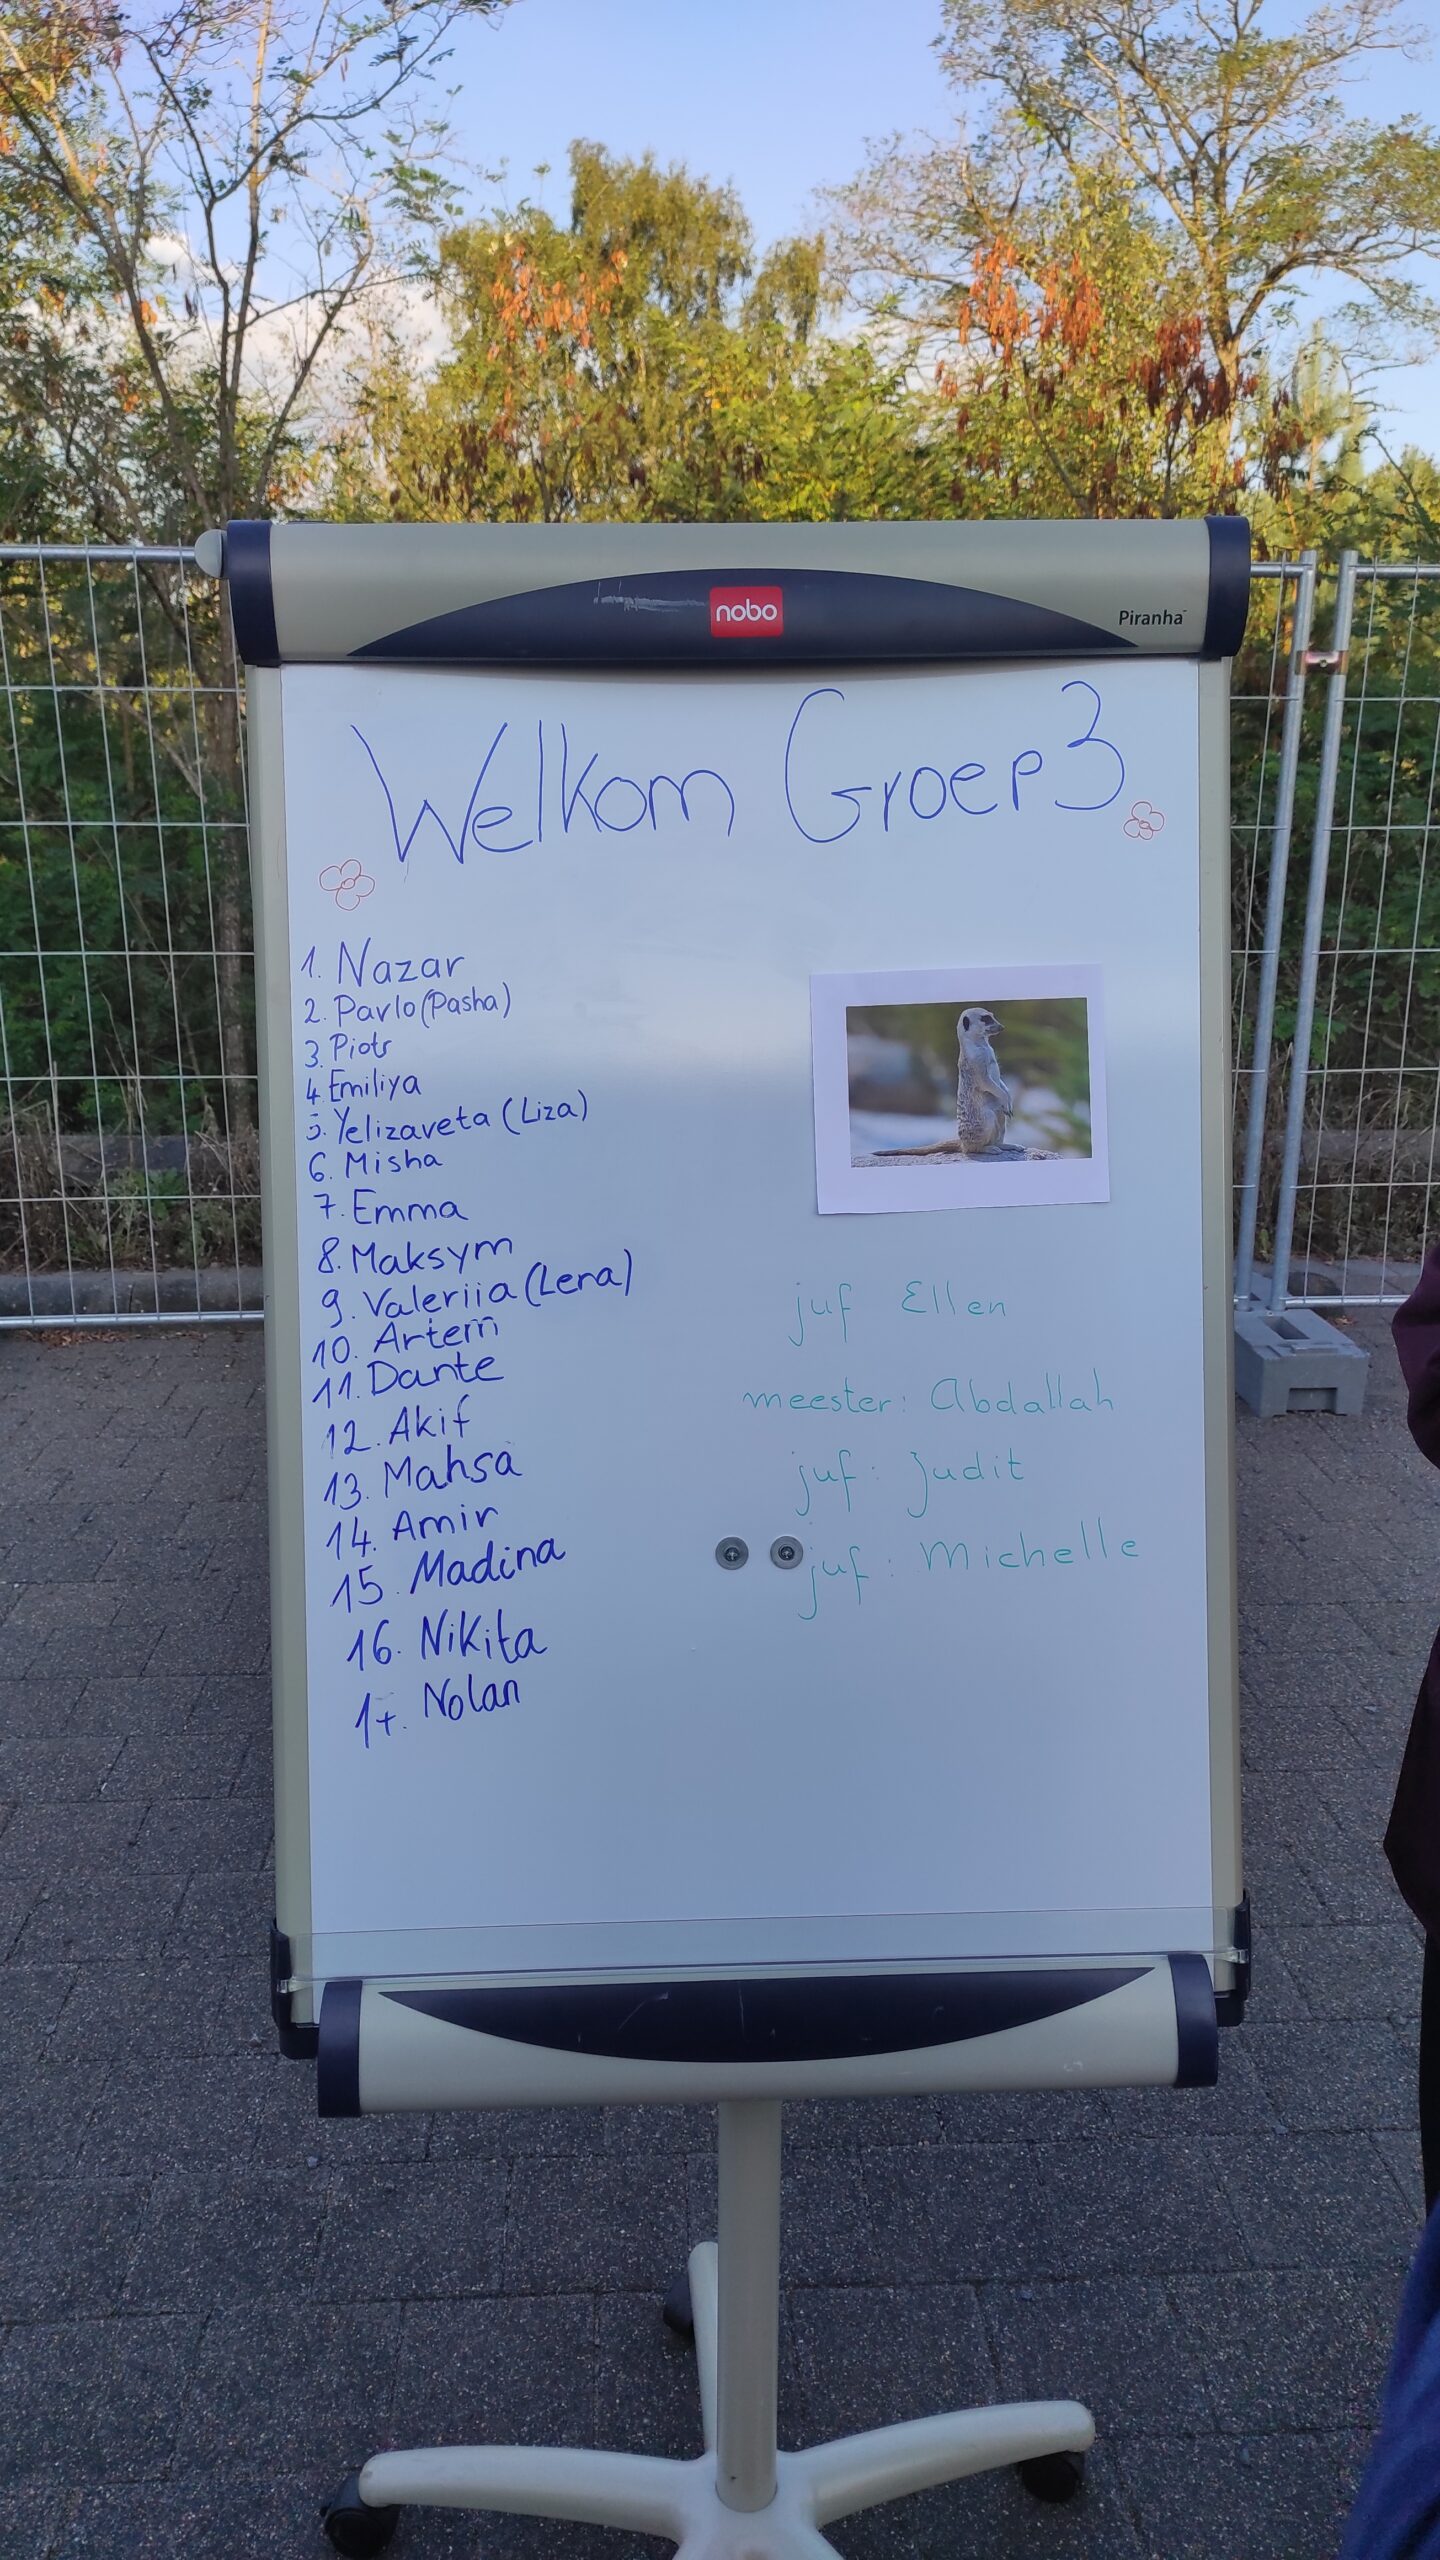 nobo
Piranha
Welkom Groep 3
1. Nazar
2. Pavlo (Pasha)
3. Piotr
4. Emiliya
5. Yelizaveta (Liza)
6. Misha
7. Emma
8. Maksym
9. Valeriia (Lena)
10. Artem
11. Dante
12. Akif
13. Mahsa
14. Amir
15. Madina
16. Nikita
17. Nolan
juf Ellen
meester: Abdallah
juf: Judit
juf: Michelle